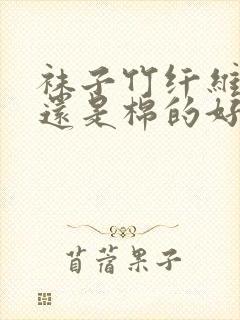 袜子竹纤维
還是棉的好
苜蓿果子